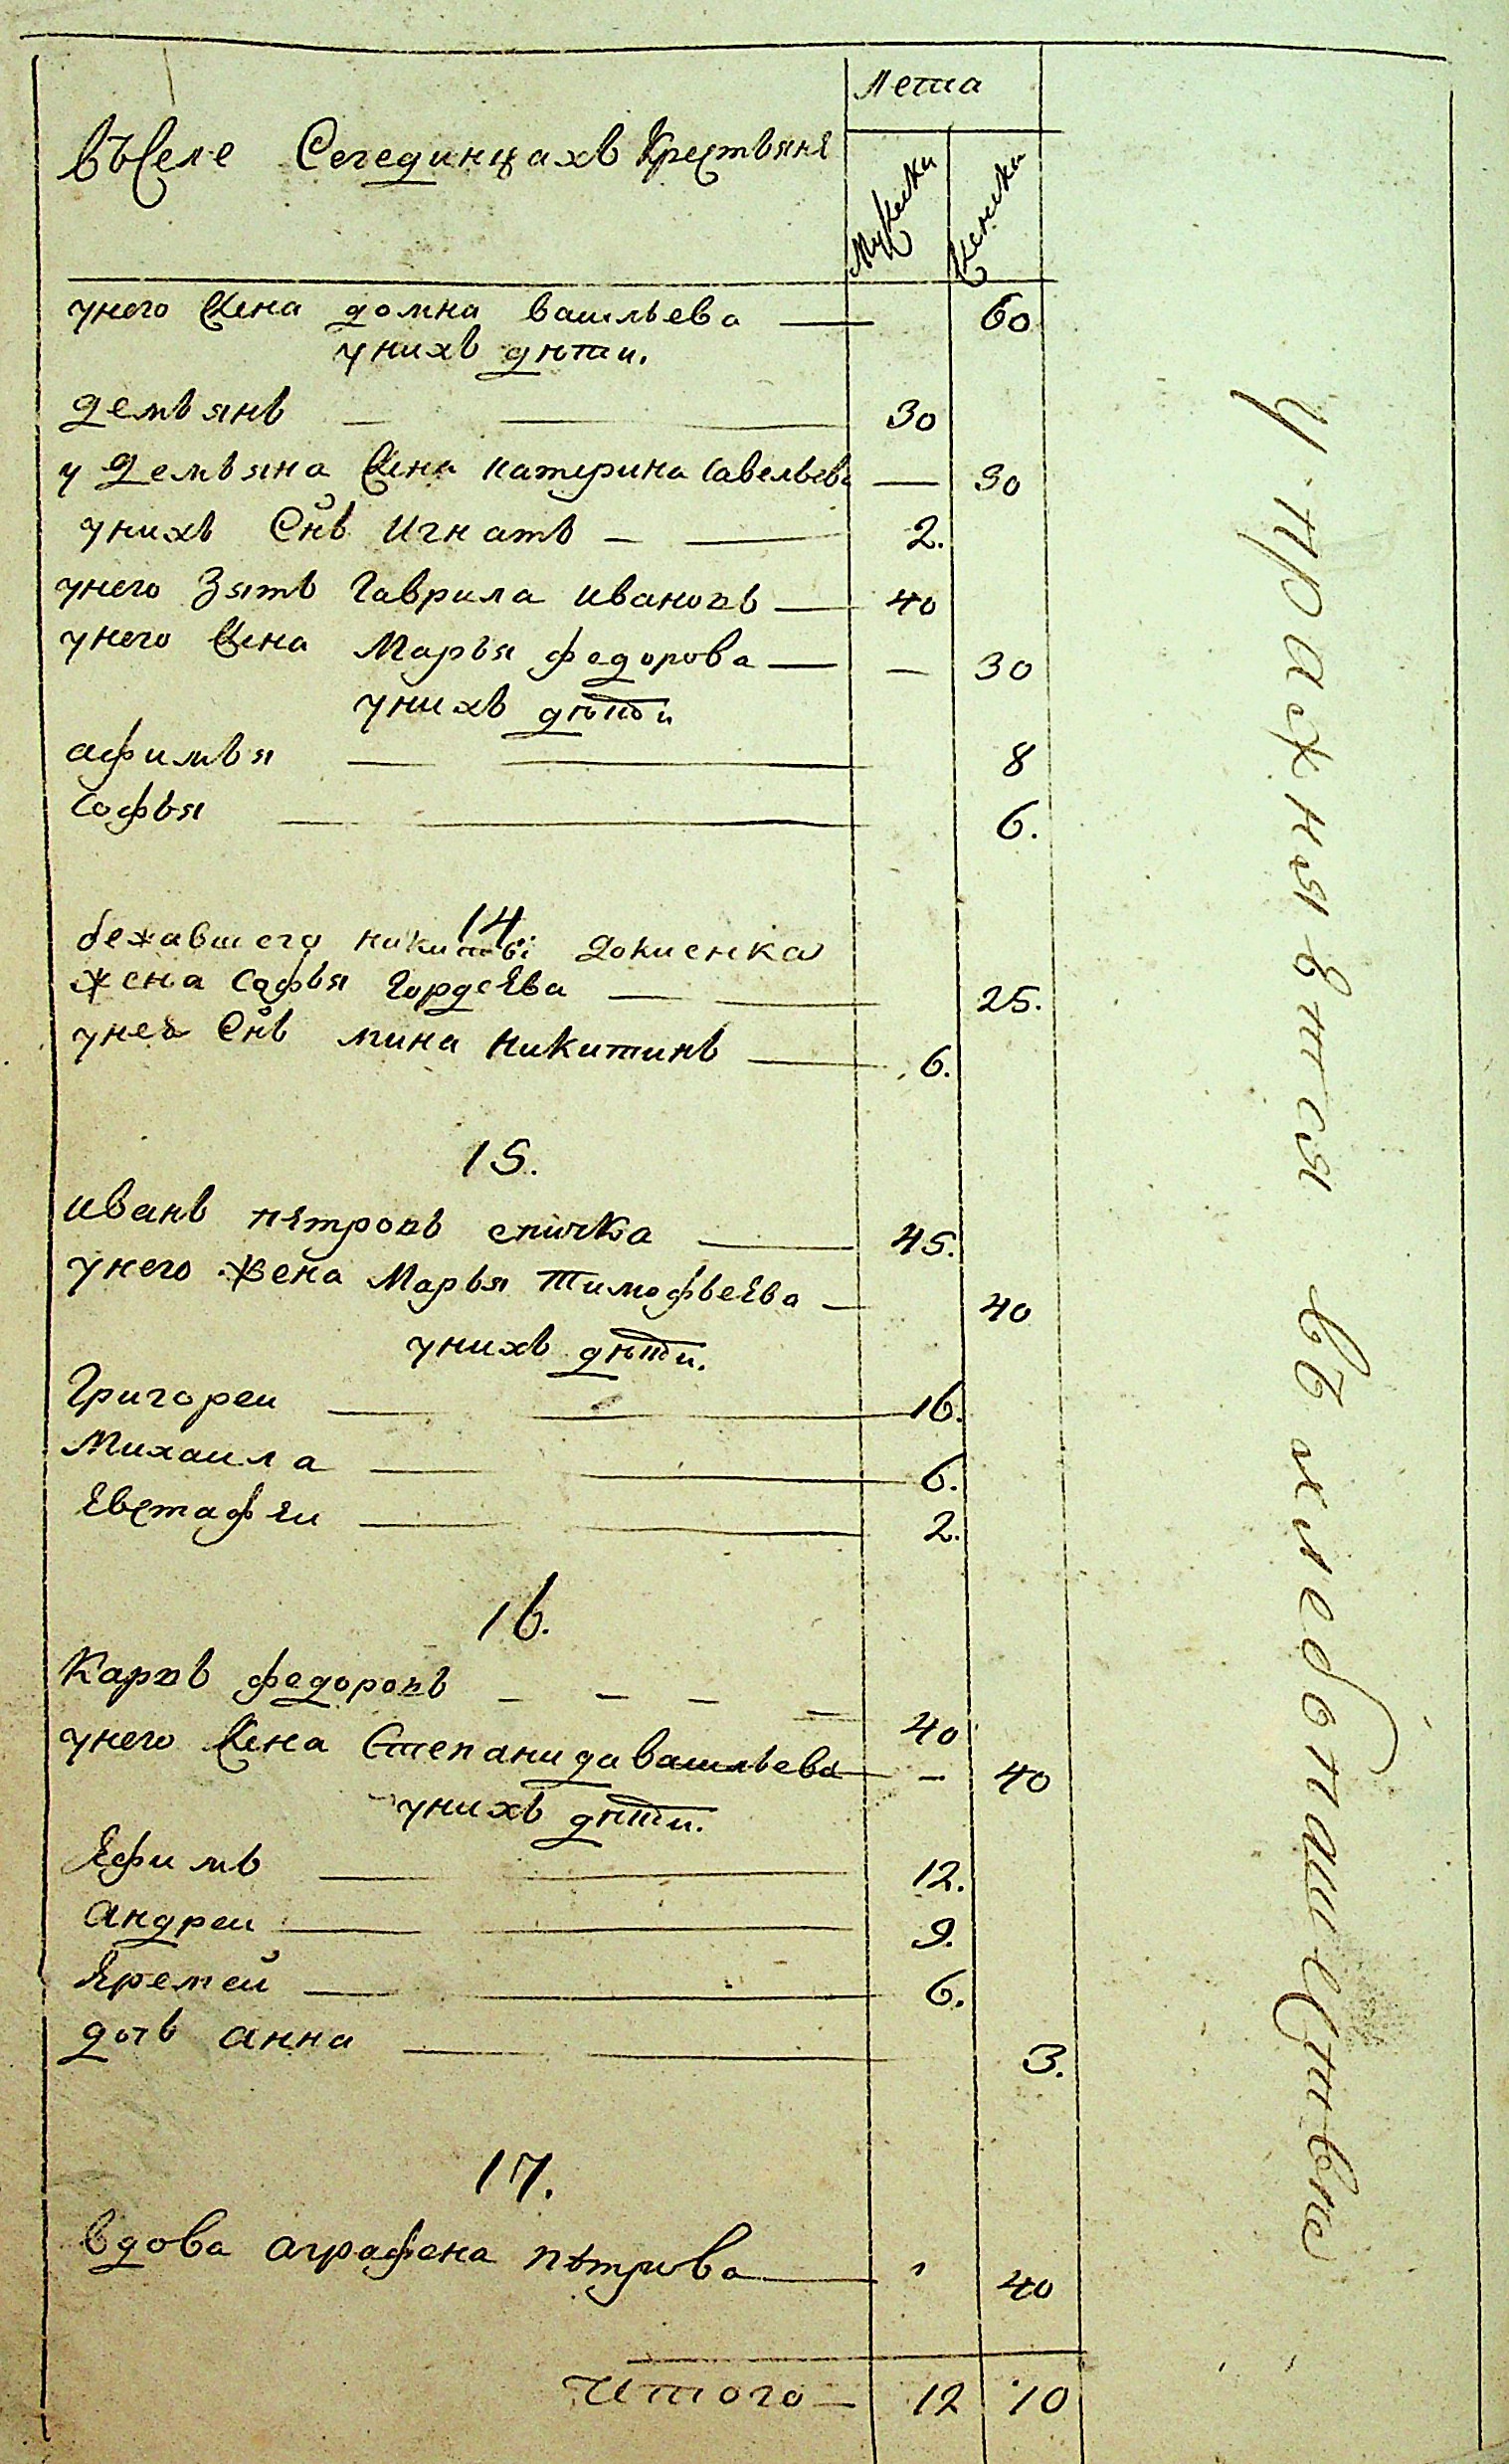 Лета
въ селе Сегединцахъ Крестьяня
Мужска Женска
унего жена домна васильева — 60
унихъ дѣти.
демьянъ — — 30
у демьяна жена катерина савельева — 30
унихъ снъ игнатъ — — 2.
унего зять гаврила ивановъ — 40
унего жена Марья федорова — — 30
унихъ дѣти
афимья — — 8
софья — 6.
14.
бежавшего никиты докиенка
жена софья гордеева — — 25.
унеѣ снъ мина никитинъ — 6.
15.
иванъ петровъ спичка — 45.
унего жена Марья тимофьеева — 40
унихъ дѣти.
Григореи — — 16.
Михаила — — 6.
Евстафеи — — 2.
16.
Карпъ федоровъ — — — — 40
унего жена степанида васильева — — 40
унихъ дѣти.
Ефимъ — — 12.
андреи — — 9.
Еремей — — 6.
дочь анна — — 3.
17.
вдова аграфена пѣтрова — 40
Итого — 12 10
упражняются въ хлебопашествѣ